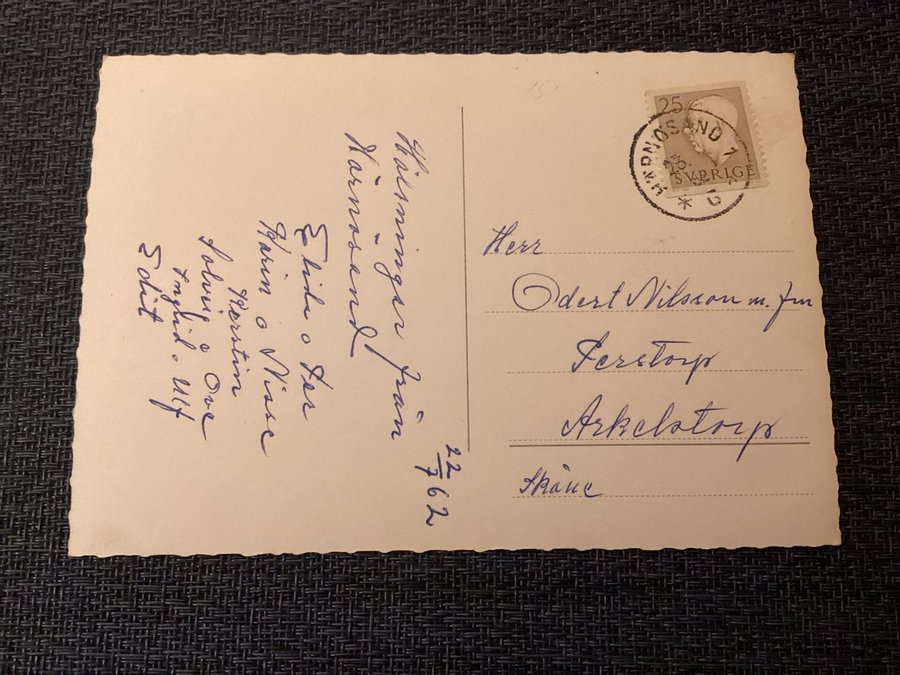 22/7 62
Hälsningar från
Härnösand
Elida o Per
Karin o Nisse
Kerstin
Solveig o Ove
Ingrid o Ulf
Edit
25
SVERIGE
HÄRNÖSAND 1
23.
Herr
Odert Nilsson m. fm
Perstorp
Arkelstorp
Skåne